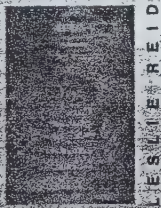 LESLIE REID